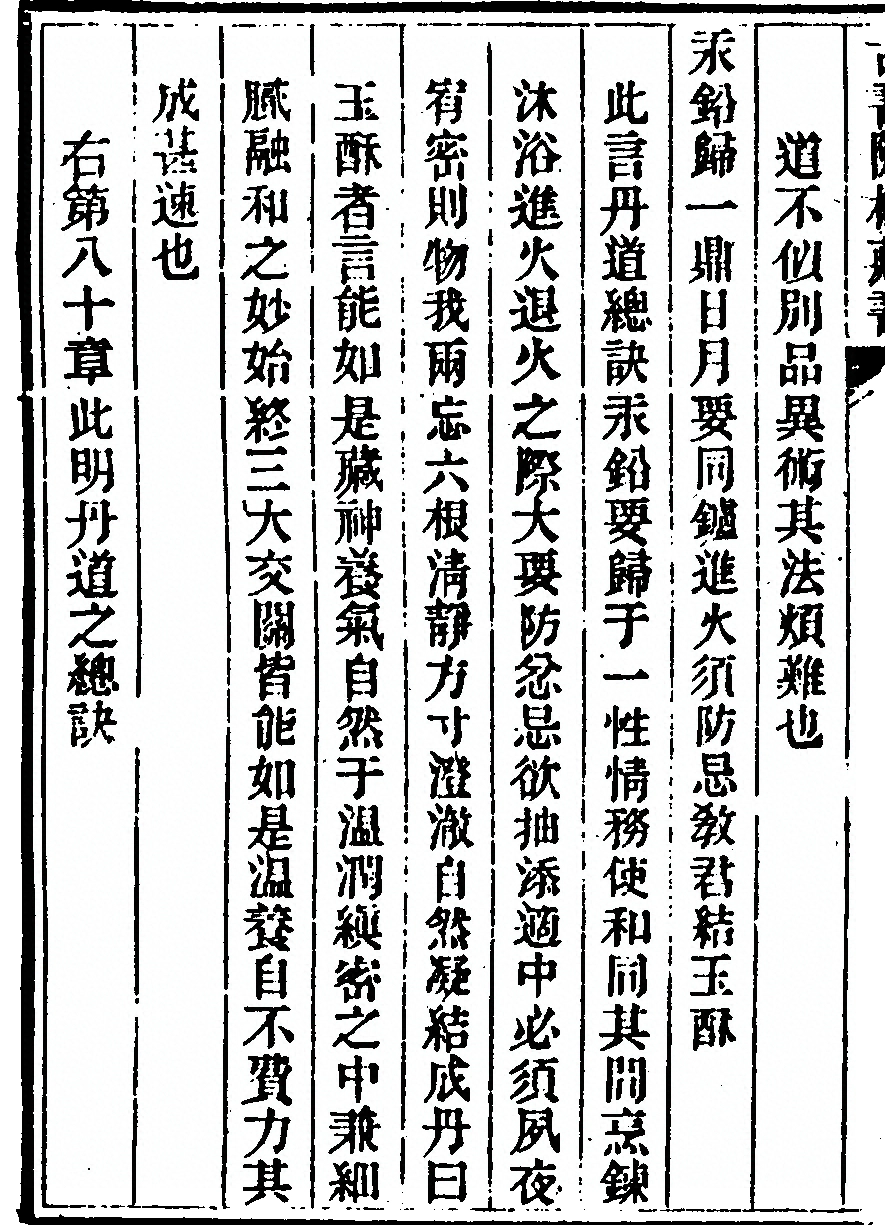 道不似別品異術其法煩難也
汞鉛歸一鼎日月要同鑪進火須防忌教君結玉酥
此言丹道總訣汞鉛要歸于一性情務使和同其間烹鍊
沐浴進火退火之際大要防忿忌欲抽添適中必須夙夜
宥密則物我兩忘六根淸靜方寸澄澈自然凝結成丹曰
玉酥者言能如是藏神養氣自然于溫潤縝密之中兼細
膩融和之妙始終三大交關皆能如是溫養自不費力其
成甚速也
右第八十章此明丹道之總訣